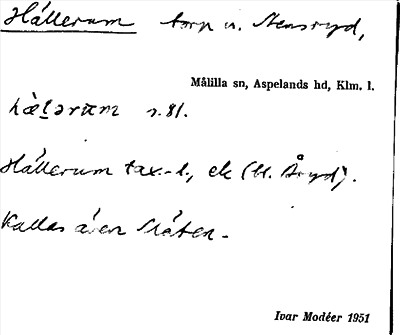 Hällerum torp u. Stensryd,
Målilla sn, Aspelands hd, Klm. l.
s. 81.
Hällerum tax.-l., ek (bl. Åryd).
Kallas även Slåten.
Ivar Modéer 1951